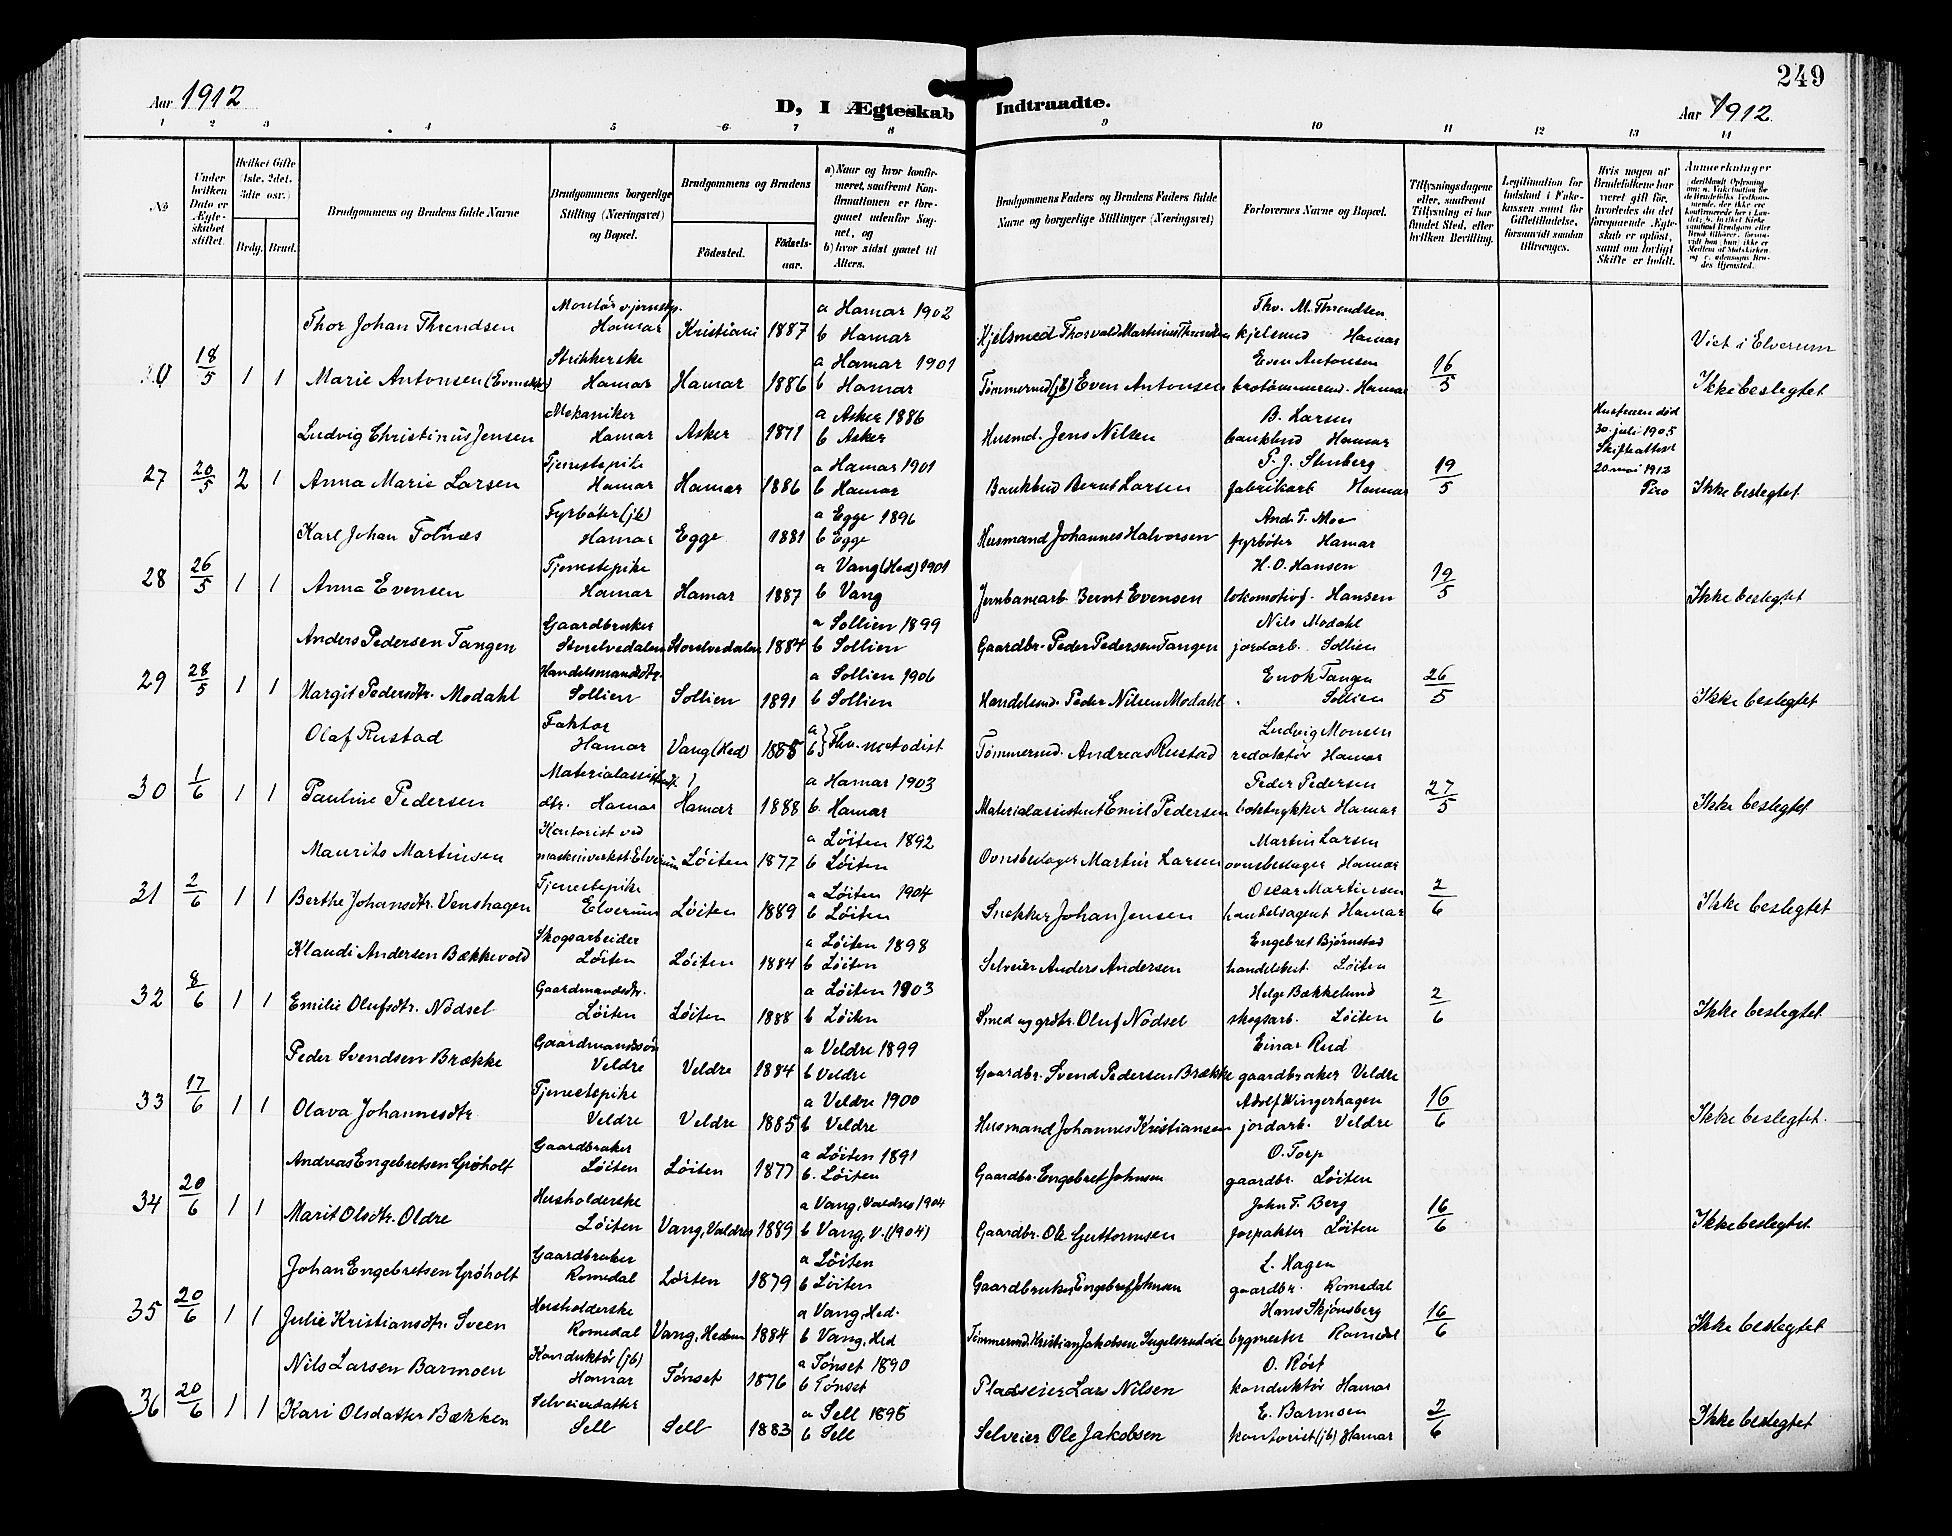 249
Aar 1912
D, I Ægteskab Indtraadte.
Aar 1912.
1 2 3 4 5 6 7 8 9 10 11 12 13 14
No
Under hvilken Dato er Ægteskabet stiftet.
Hvilket Gifte (1ste, 2det, 3die osv.)
Brdg. Brud.
Brudgommens og Brudens fulde Navne
Brudgommens borgerlige Stilling (Næringsvei) og Bopæl.
Brudgommens og Brudens
Fødested.
Fødselsaar.
a) Naar og hvor konfirmeret, saafremt Konfirmationen er foregaaet udenfor Sognet, og
b) hvor sidst gaaet til Alters.
Brudgommens Faders og Brudens Faders fulde Navne og borgerlige Stillinger (Næringsvei)
Forlovernes Navne og Bopæl.
Tillysningsdagene eller, saafremt Tillysning ei har fundet Sted, efter hvilken Bevilling.
Legitimation for Indskud i Enkekassen samt for Giftetilladelse, forsaavidt saadan tiltrænges.
Hvis nogen af Brudefolkene har været gift før, hvorledes da det foregaaende Ægteskab er opløst, samt om lovligt Skifte er holdt.
Anmærkninger
Thor Johan Threndsen Hamar Kristiani 1887 a Hamar 1902 b Hamar Kjelsmed Thorvald Martinius Threndsen Thv. M. Threndsen kjelsmd Hamar Viet i Elverum
18/5 1 1 Marie Antonsen Strikkerske Hamar Hamar 1886 a Hamar 1901 b Hamar Tømmermd (jb) Even Antonsen Even Antonsen brotømmermd. Hamar 16/5 Ikke beslegtet
Ludvig Christinus Jensen Mekaniker Hamar Asker 1871 a Asker 1886 b Asker Husmd. Jens Nilsen B. Larsen bankbud Hamar Hustruen død 30 juli 1905 Skifteattest 20 mai 1912
27 20/5 2 1 Anna Marie Larsen Tjenestepike Hamar Hamar 1886 a Hamar 1901 b Hamar Bankbud Bernt Larsen P. J. Stenberg fabrikarb Hamar 19/5 Ikke beslegtet
Karl Johan Folnæs Fyrbøter (jb) Hamar Egge 1881 a Egge 1896 b Egge Husmand Johannes Halvorsen And. T. Moe fyrbøter Hamar
28 26/5 1 1 Anna Evensen Tjenestepike Hamar Hamar 1887 a Vang (Hed) 1901 b Vang Jernbanearb Bernt Evensen H. O. Hansen lokomotivf. Hansen 19/5 Ikke beslegtet
Anders Pedersen Tangen Gaardbruker Storelvedalen Storelvedalen 1884 a Sollien 1899 b Sollien Gaardbr. Peder Pedersen Tangen Nils Modahl jordarb. Sollien
29 28/5 1 1 Margit Pedersdtr. Modahl Handelsmandsdtr. Sollien Sollien 1891 a Sollien 1906 b Sollien Handelsmd. Peder Nilsen Modahl Enok Tangen Sollien 26/5 Ikke beslegtet
Olaf Rustad Faktor Hamar Vang (Hed) 1885 a b } Fhv. metodist Tømmermd. Andreas Rustad Ludvig Monsen redaktør Hamar
30 1/6 1 1 Pauline Pedersen Materialassistent dtr. Hamar Hamar 1888 a Hamar 1903 b. Hamar Materialassistent Emil Pedersen Peder Pedersen boktrykker Hamar 27/5 Ikke beslegtet
Maurits Martinsen Kontorist ved maskinverkst Elverum Løiten 1877 a Løiten 1892 b Løiten Ovnsbeslager Martin Larsen Martin Larsen ovnsbeslager Hamar
31 2/6 1 1 Berthe Johansdtr. Venshagen Tjenestepike Elverum Løiten 1889 a Løiten 1904 b Løiten Snekker Johan Jensen Oscar Martinsen handelsagent Hamar 2/6 Ikke beslegtet
Klaudi Andersen Bækkevold Skogsarbeider Løiten Løiten 1884 a Løiten 1898 b Løiten Selveier Anders Andersen Engebret Bjørnstad handelsbet. Løiten
32 8/6 1 1 Emilie Olufsdtr. Nødsel Gaardmandsdtr. Løiten Løiten 1888 a Løiten 1903 b Løiten Smed og grdbr. Oluf Nødsel Helge Bækkelund skogsarb. Løiten 2/6 Ikke beslegtet.
Peder Svendsen Brække Gaardmandssøn Veldre Veldre 1884 a Veldre 1899 b Veldre Gaardbr. Svend Pedersen Brække Einar Rud gaardbruker Veldre
33 17/6 1 1 Olava Johannesdtr Tjenestepike Veldre Veldre 1885 a Veldre 1900 b Veldre Husmand Johannes Kristiansen Adolf Wingerhagen jordarb. Veldre 16/6 Ikke beslegtet.
Andreas Engebretsen Grøholt Gaardbruker Løiten Løiten 1877 a Løiten 1891 b. Løiten Gaardbr. Engebret Johnsen O. Torp gaardbr. Løiten
34 20/6 1 1 Marit Olsdtr. Oldre Husholderske Løiten Vang, Valdres 1889 a Vang, Valdres 1904 b Vang, V. (1904) Gaardbr. Ole Guttormsen John F. Berg forpakter Løiten 16/6 Ikke beslegtet
Johan Engebretsen Grøholt Gaardbruker Romedal Løiten 1879 a Løiten b Løiten Gaardbruker Engebret Johnsen L. Hagen gaardbr. Romedal
35 20/6 1 1 Julie Kristiansdtr. Sveen Husholderske Romedal Vang, Hedem 1884 a Vang, Hed. b Vang, Hed Tømmermd. Kristian Jakobsen Hans Skjønsberg bygmester Romedal 16/6 Ikke beslegtet
Nils Larsen Barmoen Konduktør (jb) Hamar Tønset 1876 a Tønset 1890 b Tønset Pladseier Lars Nilsen O. Røst konduktør Hamar
36 20/6 1 1 Kari Olsdatter Bækken Selveierdatter Sell Sell 1883 a Sell 1898 b Sell Selveier Ole Jakobsen E. Barmoen kontorist (jb) Hamar 2/6 Ikke beslegtet